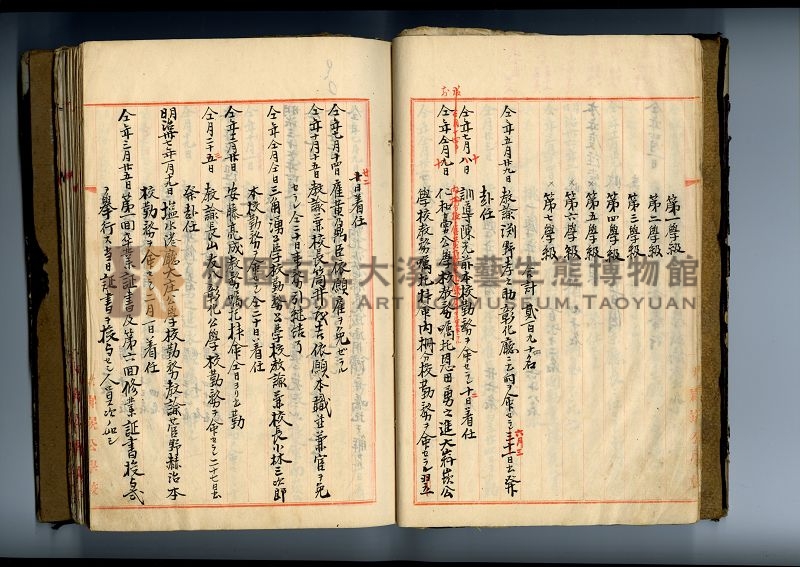 第一學級
第二學級
第三學級
第四學級
第五學級
×第六學級
×第七學級
合計 貳百九十四名
仝年五月廿九日 教諭渕野孝之助彰化廳ニ出向ヲ命セラレ三十一日出発
六月三
赴任
仝年七月八日 訓導陳元 本校勤務ヲ命セラレ十日着任
仝年仝月九日 仁和臺公學校教務囑托恩田勇之進大嵙崁公
學校教務囑托抦用内柵分校勤務ヲ命セラレ翌
廿日着任
仝年七月十四日 雇黃 臣依願雇ヲ免セラル
仝年十月十五日 教諭兼校長筒井 吉依願本職並兼官ヲ免
セラレ仝三十日事務引継結了
仝年仝月仝日三角湧公學校勤務公學校教諭兼校長小林三次郎
本校勤務ヲ命セラレ仝二十日着任
仝年十一月廿日 安藤亮成教務囑托抦命仝日ヨリ出勤
仝月二十五日 教諭長山 彰化公學校勤務ヲ命セラレ二十七日出
発赴任
明治卅七年一月十九日 塩水港廳大庄公學校勤務教諭菅野赫治本
校勤務ヲ命セラレ二月一日着任
仝年三月廿五日 第一回卒業証書及第六回修業証書授与式
ヲ舉行ス当日証書ヲ授与セシ人員次ノ如シ
桃園市立大溪木藝生態博物館
DAXI WOOD ART ECOMUSEUM, TAOYUAN